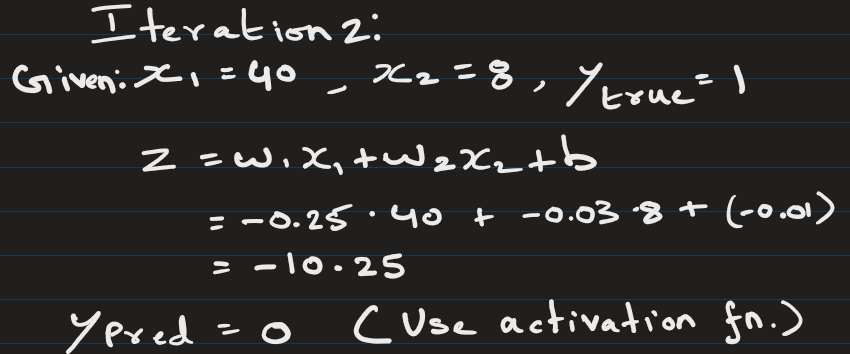 Iteration 2:
Given: x₁ = 40 , x₂ = 8 , y_true = 1
z = w₁x₁ + w₂x₂ + b
= -0.25 · 40 + -0.03 · 8 + (-0.01)
= -10.25
y_pred = 0 (Use activation fn.)